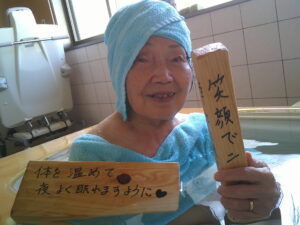 体を温めて
夜よく眠れますように
笑顔で